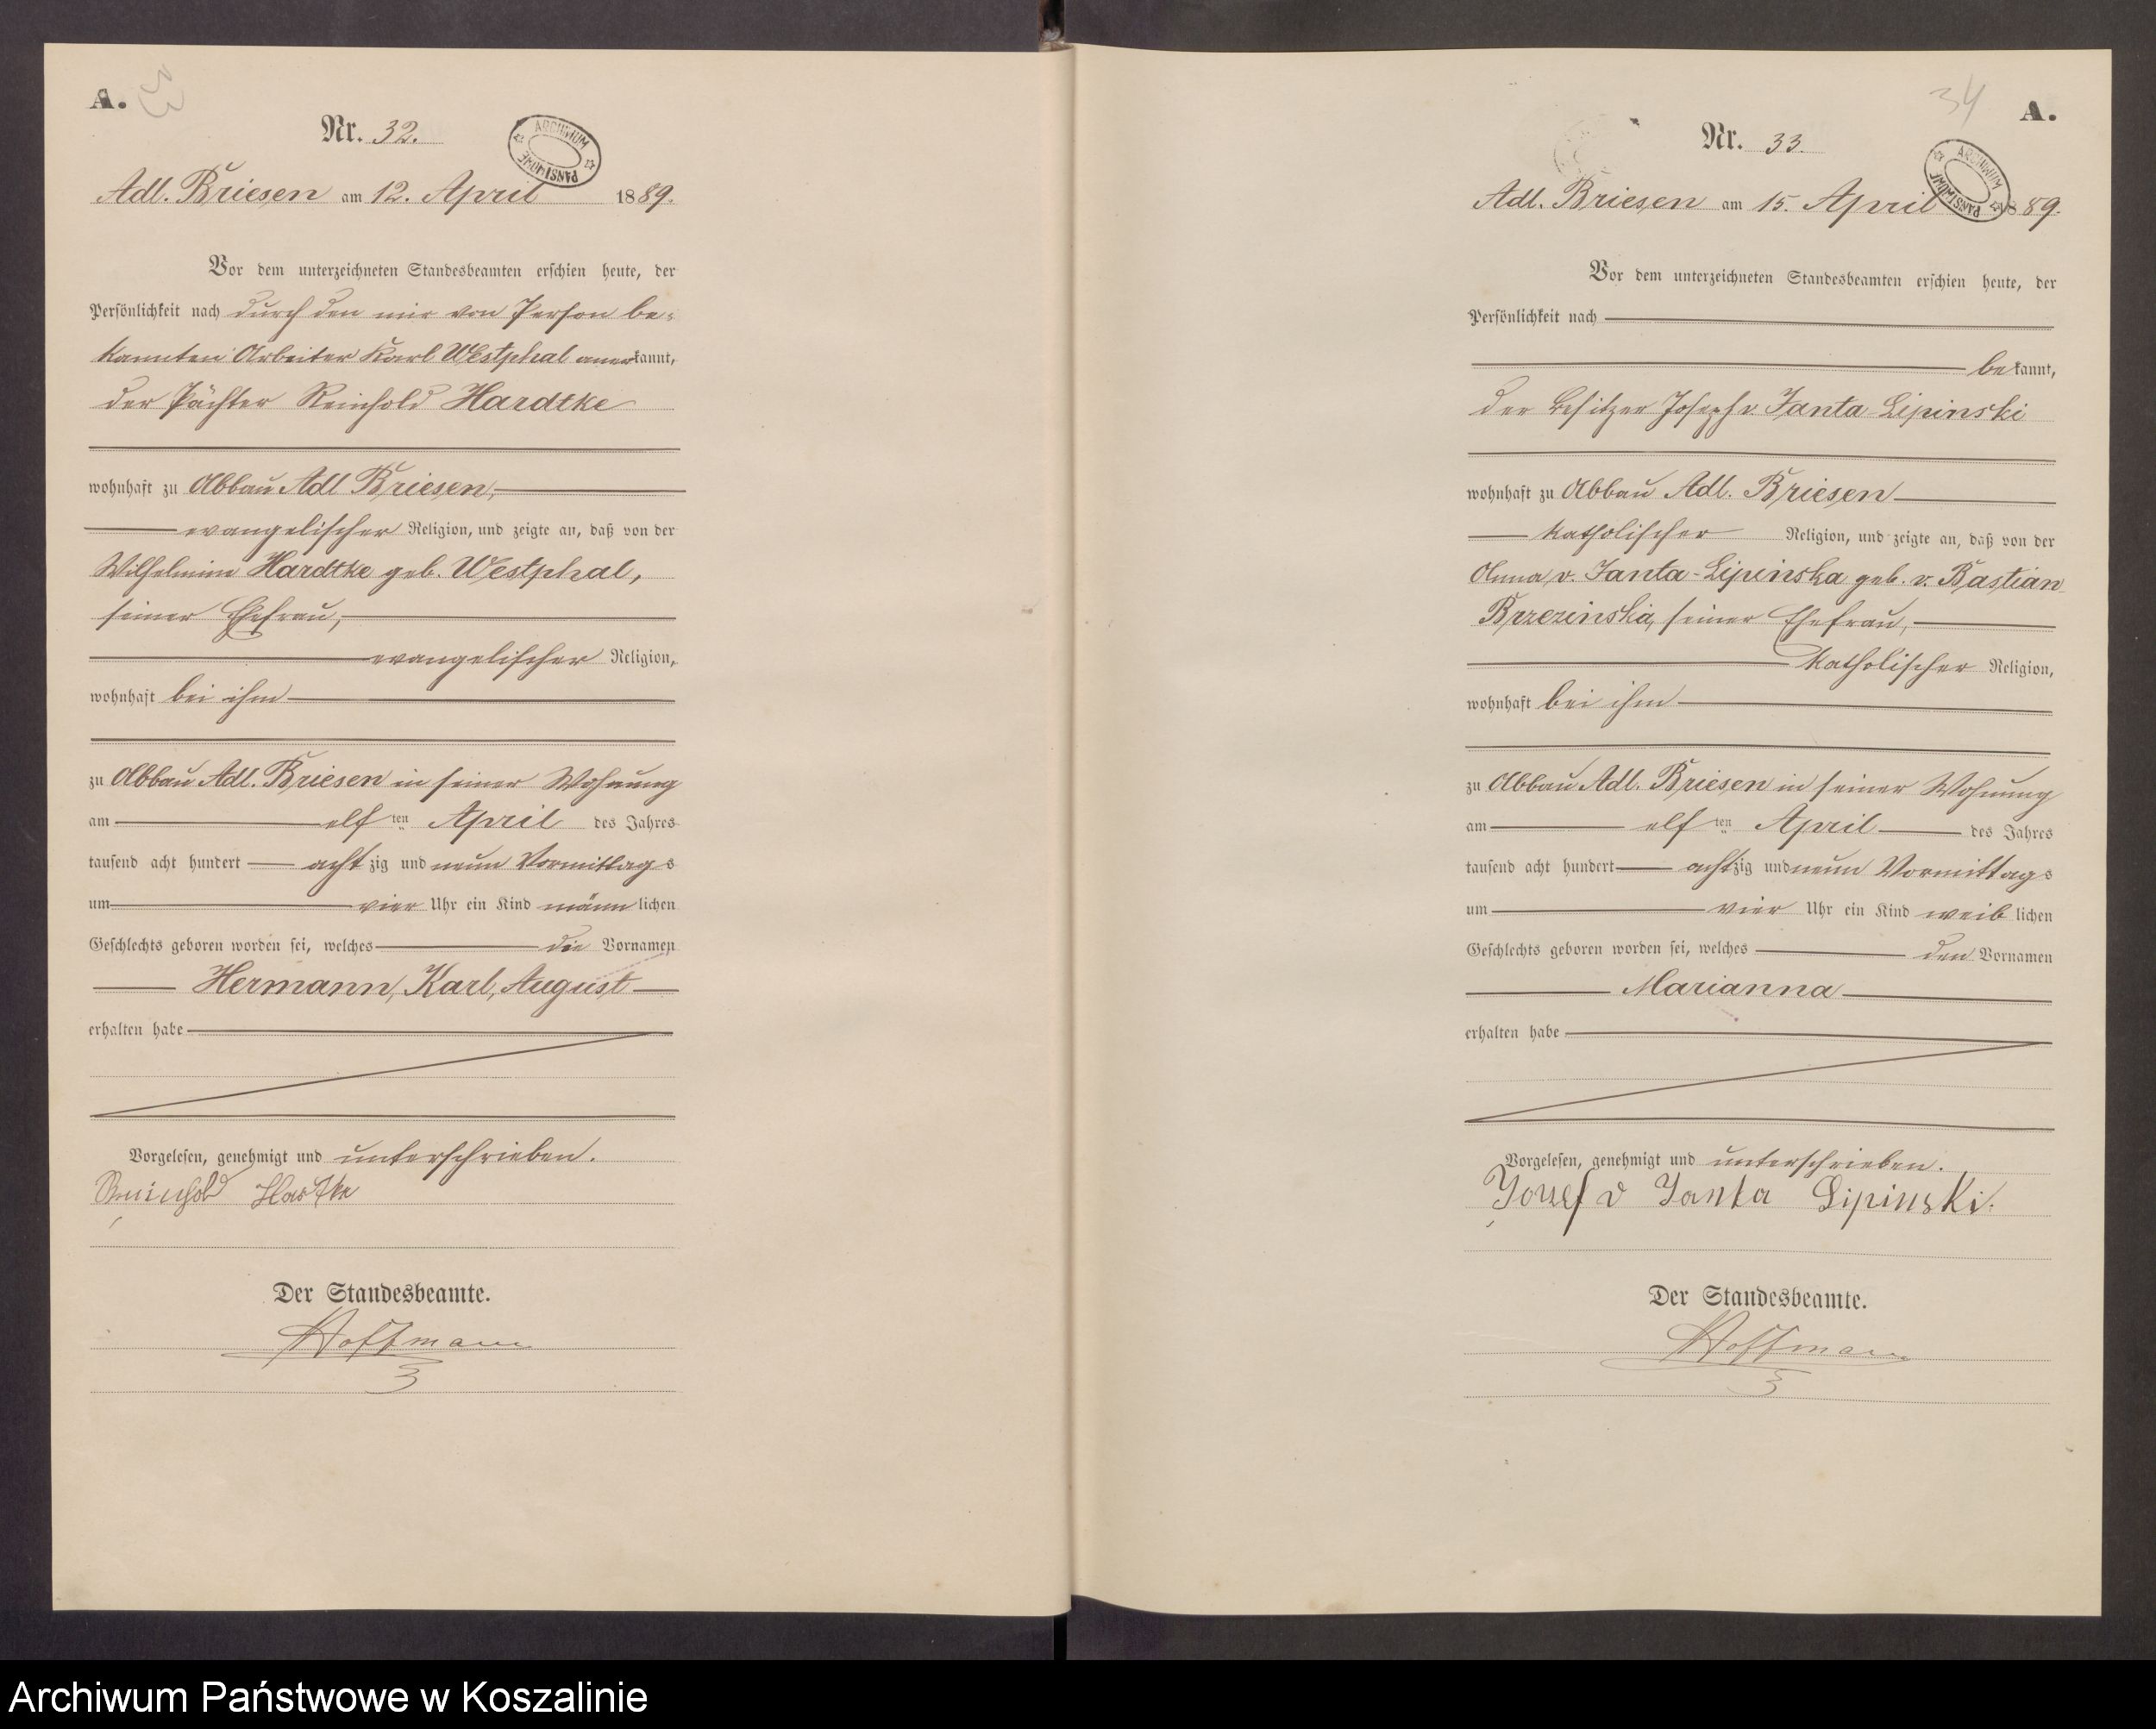 A.
33
Nr. 32.
ARCHIWUM PAŃSTWOWE
Adl. Briesen am 12. April 1889.
Vor dem unterzeichneten Standesbeamten erschien heute, der
Persönlichkeit nach durch den mir von Person be-
kannten Arbeiter Karl Westphal anerkannt,
der Pächter Reinhold Hardtke
wohnhaft zu Abbau Adl Briesen,
evangelischer Religion, und zeigte an, daß von der
Wilhelmine Hardtke geb. Westphal,
seiner Ehefrau,
evangelischer Religion,
wohnhaft bei ihm
zu Abbau Adl. Briesen in seiner Wohnung
am elf ten April des Jahres
tausend acht hundert achtzig und neun Vormittags
um vier Uhr ein Kind männlichen
Geschlechts geboren worden sei, welches die Vornamen
Hermann, Karl, August
erhalten habe
Vorgelesen, genehmigt und unterschrieben.
Reinhold Hartke
Der Standesbeamte.
Hoffmann
34
A.
Nr. 33.
ARCHIWUM PAŃSTWOWE
Adl. Briesen am 15. April 1889.
Vor dem unterzeichneten Standesbeamten erschien heute, der
Persönlichkeit nach
bekannt,
der Besitzer Joseph v. Janta Lipinski
wohnhaft zu Abbau Adl. Briesen
katholischer Religion, und zeigte an, daß von der
Anna v. Janta-Lipinska geb. v. Bastian
Brzezinska, seiner Ehefrau,
katholischer Religion,
wohnhaft bei ihm
zu Abbau Adl. Briesen in seiner Wohnung
am elf ten April des Jahres
tausend acht hundert achtzig und neun Vormittags
um vier Uhr ein Kind weiblichen
Geschlechts geboren worden sei, welches den Vornamen
Marianna
erhalten habe
Vorgelesen, genehmigt und unterschrieben.
Jozef v Janta Lipinski.
Der Standesbeamte.
Hoffmann
Archiwum Państwowe w Koszalinie